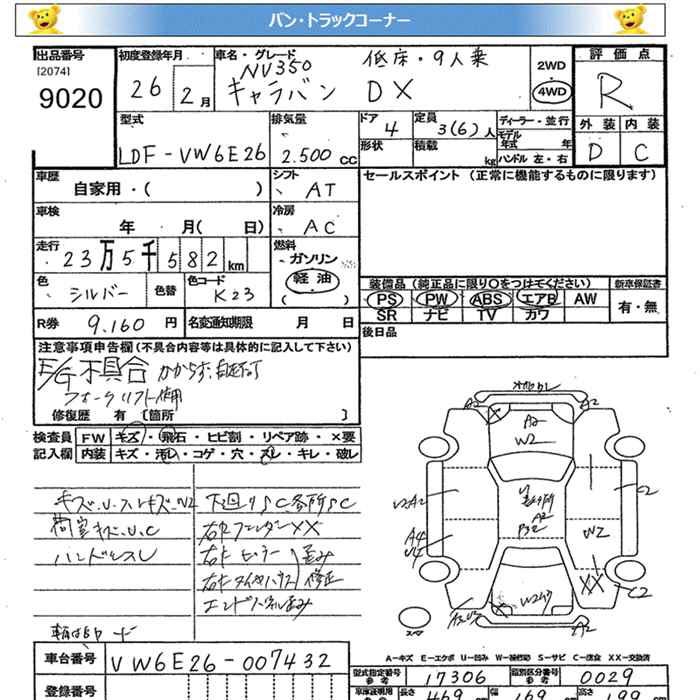 バン・トラックコーナー
出品番号
[2074]
9020
初度登録年月
26 2月
車名・グレード
NV350 低床・9人乗
キャラバン DX
2WD
4WD
評価点
R
外装 内装
D C
型式
LDF-VW6E26
排気量
2.500 cc
ドア
4
定員
3(6)人
形状
積載
kg
ディーラー・並行
モデル
年式 年
ハンドル 左・右
車歴
自家用・( )
シフト
AT
セールスポイント (正常に機能するものに限ります)
車検
年 月( 日)
冷房
AC
走行
23万5千582km
燃料
ガソリン
軽油
( )
色
シルバー
色替
色コード
K23
装備品 (純正品に限り○をつけてください)
新車保証書
PS PW ABS エアB AW
有・無
SR ナビ TV カワ
R券 9.160 円
名変通知期限 月 日
後日品
注意事項申告欄 (不具合内容等は具体的に記入して下さい)
E/G不具合 かからず、自走不可
フォークリフト使用
修復歴 有 [箇所 ]
検査員 FW キズ・飛石・ヒビ割・リペア跡・×要
記入欄 内装 キズ・汚レ・コゲ・穴・スレ・キレ・破レ
キズ・U・スレキズ・W2
荷室キズ・U、C
ハンドルスレ
下廻りSC各所SC
右Rフェンダー××
エンドパネル歪み
歪み
修正
車台番号 VW6E26-007432
登録番号
A2
A2
A2
W2
U2A2
A4
U4
A2
C2
W2
XX
C2
A2
A-キズ E-エクボ U-凹み W-補修跡 S-サビ C-腐食 XX-交換済
型式指定番号 17306
類別区分番号 0029
参考
車庫証明用 長さ 469 cm 幅 169 cm 高さ 199 cm